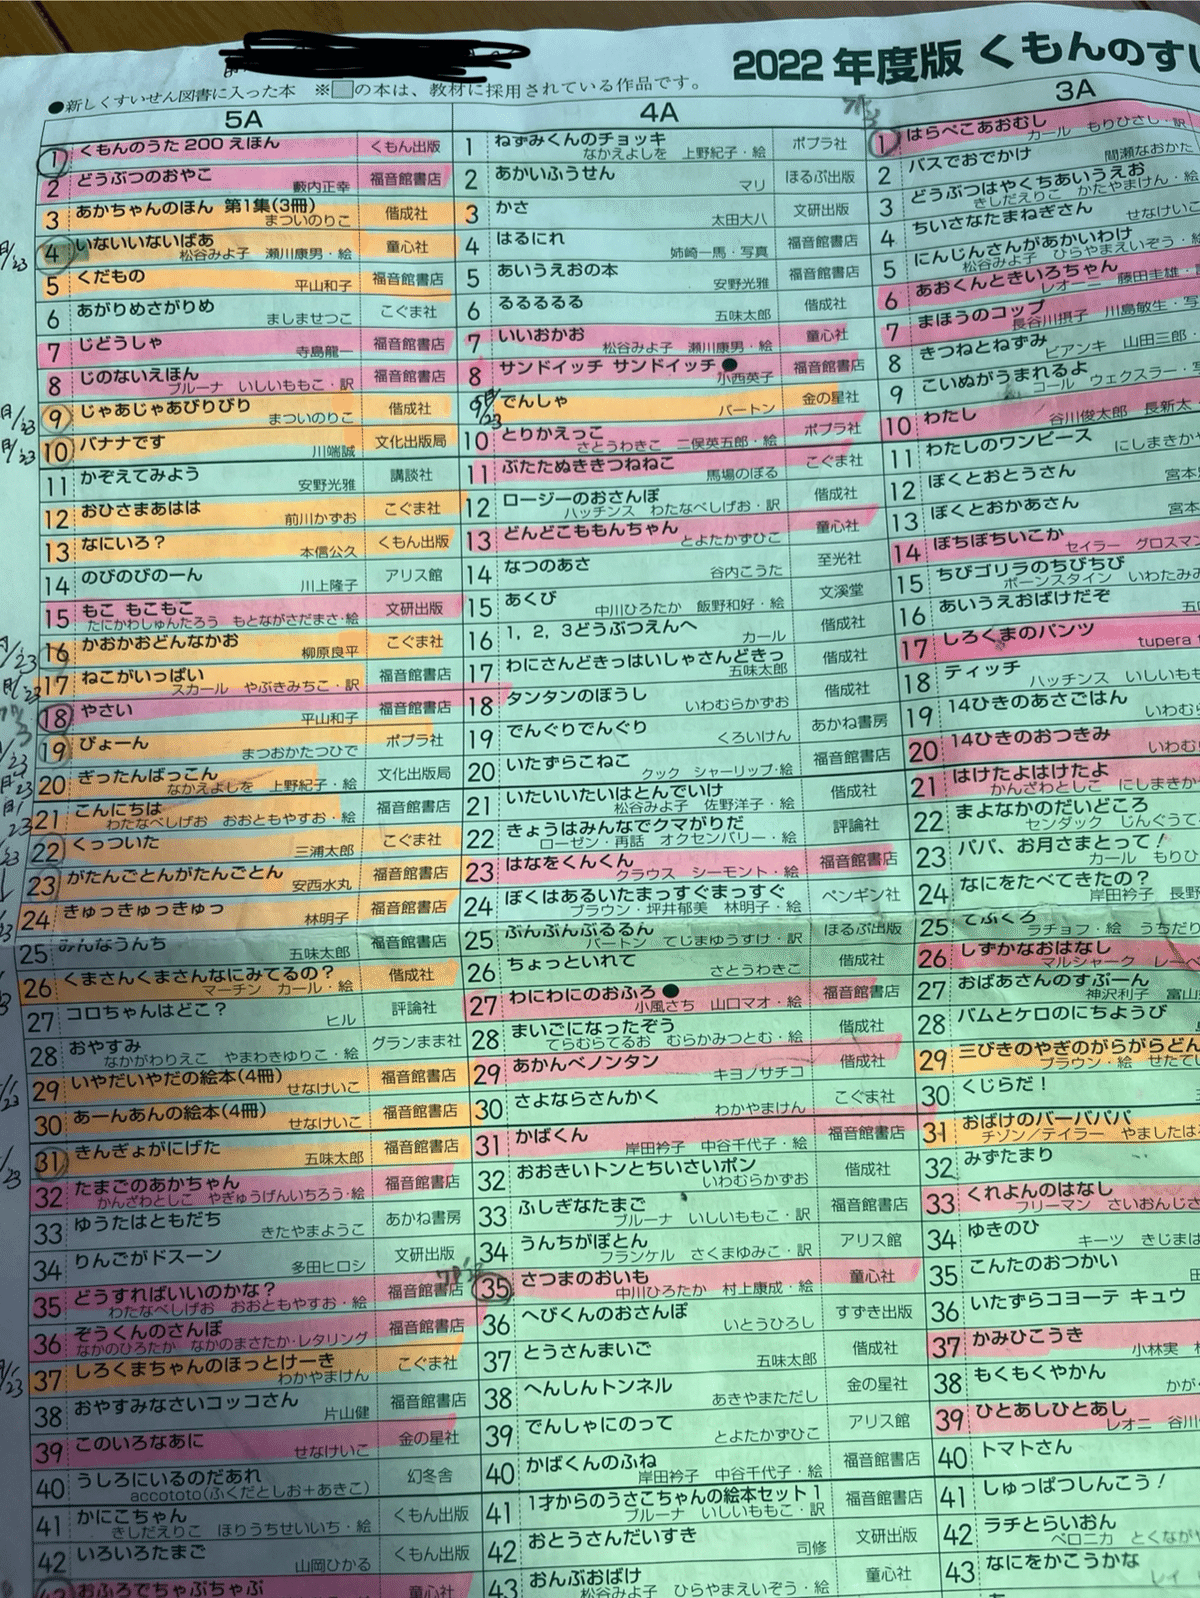 2022 年度版 くもんのすい
●新しくすいせん図書に入った本 ※□の本は、教材に採用されている作品です。
5A
1 くもんのうた 200 えほん くもん出版
2 どうぶつのおやこ 薮内正幸 福音館書店
3 あかちゃんのほん 第1集(3冊) まついのりこ 偕成社
4 いないいないばあ 松谷みよ子 瀬川康男・絵 童心社
5 くだもの 平山和子 福音館書店
6 あがりめさがりめ ましませつこ こぐま社
7 じどうしゃ 寺島龍一 福音館書店
8 じのないえほん ブルーナ いしいももこ・訳 福音館書店
9 じゃあじゃあびりびり まついのりこ 偕成社
10 バナナです 川端誠 文化出版局
11 かぞえてみよう 安野光雅 講談社
12 おひさまあはは 前川かずお こぐま社
13 なにいろ？ 本信公久 くもん出版
14 のびのびのーん 川上隆子 アリス館
15 もこ もこもこ たにかわしゅんたろう もとながさだまさ・絵 文研出版
16 かおかおどんなかお 柳原良平 こぐま社
17 ねこがいっぱい スカール やぶきみちこ・訳 福音館書店
18 やさい 平山和子 福音館書店
19 ぴょーん まつおかたつひで ポプラ社
20 ぎったんばっこん なかえよしを 上野紀子・絵 文化出版局
21 こんにちは わたなべしげお おおともやすお・絵 福音館書店
22 くっついた 三浦太郎 こぐま社
23 がたんごとんがたんごとん 安西水丸 福音館書店
24 きゅっきゅっきゅっ 林明子 福音館書店
25 みんなうんち 五味太郎 福音館書店
26 くまさんくまさんなにみてるの？ マーチン カール・絵 偕成社
27 コロちゃんはどこ？ ヒル 評論社
28 おやすみ なかがわりえこ やまわきゆりこ・絵 グランまま社
29 いやだいやだの絵本(4冊) せなけいこ 福音館書店
30 あーんあんの絵本(4冊) せなけいこ 福音館書店
31 きんぎょがにげた 五味太郎 福音館書店
32 たまごのあかちゃん かんざわとしこ やぎゅうげんいちろう・絵 福音館書店
33 ゆうたはともだち きたやまようこ あかね書房
34 りんごがドスーン 多田ヒロシ 文研出版
35 どうすればいいのかな？ わたなべしげお おおともやすお・絵 福音館書店
36 ぞうくんのさんぽ なかのひろたか なかのまさたか・レタリング 福音館書店
37 しろくまちゃんのほっとけーき わかやまけん こぐま社
38 おやすみなさいコッコさん 片山健 福音館書店
39 このいろなあに せなけいこ 金の星社
40 うしろにいるのだあれ accototo(ふくだとしお+あきこ) 幻冬舎
41 かにこちゃん きしだえりこ ほりうちせいいち・絵 くもん出版
42 いろいろたまご 山岡ひかる くもん出版
43 おふろでちゃぷちゃぷ 童心社
4A
1 ねずみくんのチョッキ なかえよしを 上野紀子・絵 ポプラ社
2 あかいふうせん マリ ほるぷ出版
3 かさ 太田大八 文研出版
4 はるにれ 姉崎一馬・写真 福音館書店
5 あいうえおの本 安野光雅 福音館書店
6 るるるるる 五味太郎 偕成社
7 いいおかお 松谷みよ子 瀬川康男・絵 童心社
8 サンドイッチ サンドイッチ ● 小西英子 福音館書店
9 でんしゃ バートン 金の星社
10 とりかえっこ さとうわきこ 二俣英五郎・絵 ポプラ社
11 ぶたたぬききつねねこ 馬場のぼる こぐま社
12 ロージーのおさんぽ ハッチンス わたなべしげお・訳 偕成社
13 どんどこももんちゃん とよたかずひこ 童心社
14 なつのあさ 谷内こうた 至光社
15 あくび 中川ひろたか 飯野和好・絵 文溪堂
16 1, 2, 3どうぶつえんへ カール 偕成社
17 わにさんどきっはいしゃさんどきっ 五味太郎 偕成社
18 タンタンのぼうし いわむらかずお 偕成社
19 でんぐりでんぐり くろいけん あかね書房
20 いたずらこねこ クック シャーリップ・絵 福音館書店
21 いたいいたいはとんでいけ 松谷みよ子 佐野洋子・絵 偕成社
22 きょうはみんなでクマがりだ ローゼン・再話 オクセンバリー・絵 評論社
23 はなをくんくん クラウス シーモント・絵 福音館書店
24 ぼくはあるいたまっすぐまっすぐ ブラウン・坪井郁美 林明子・絵 ペンギン社
25 ぶんぶんぶるるん バートン てじまゆうすけ・訳 ほるぷ出版
26 ちょっといれて さとうわきこ 偕成社
27 わにわにのおふろ ● 小風さち 山口マオ・絵 福音館書店
28 まいごになったぞう てらむらてるお むらかみつとむ・絵 偕成社
29 あかんべノンタン キヨノサチコ 偕成社
30 さよならさんかく わかやまけん こぐま社
31 かばくん 岸田衿子 中谷千代子・絵 福音館書店
32 おおきいトンとちいさいポン いわむらかずお 偕成社
33 ふしぎなたまご ブルーナ いしいももこ・訳 福音館書店
34 うんちがぽとん フランケル さくまゆみこ・訳 アリス館
35 さつまのおいも 中川ひろたか 村上康成・絵 童心社
36 へびくんのおさんぽ いとうひろし すずき出版
37 とうさんまいご 五味太郎 偕成社
38 へんしんトンネル あきやまただし 金の星社
39 でんしゃにのって とよたかずひこ アリス館
40 かばくんのふね 岸田衿子 中谷千代子・絵 福音館書店
41 1才からのうさこちゃんの絵本セット1 ブルーナ いしいももこ・訳 福音館書店
42 おとうさんだいすき 司修 文研出版
43 おんぶおばけ 松谷みよ子 ひらやまえいぞう・絵 童心社
3A
1 はらぺこあおむし カール もりひさし・訳
2 バスでおでかけ 間瀬なおかた
3 どうぶつはやくちあいうえお きしだえりこ かたやまけん・絵
4 ちいさなたまねぎさん せなけいこ
5 にんじんさんがあかいわけ 松谷みよ子 ひらやまえいぞう・絵
6 あおくんときいろちゃん レオーニ 藤田圭雄・
7 まほうのコップ 長谷川摂子 川島敏生・写
8 きつねとねずみ ビアンキ 山田三郎
9 こいぬがうまれるよ コール ウェクスラー・写
10 わたし 谷川俊太郎 長新太
11 わたしのワンピース にしまきか
12 ぼくとおとうさん 宮本
13 ぼくとおかあさん 宮本
14 ぼちぼちいこか セイラー グロスマン
15 ちびゴリラのちびちび ボーンスタイン いわたみみ
16 あいうえおばけだぞ 五
17 しろくまのパンツ tupera
18 ティッチ ハッチンス いしいもも
19 14ひきのあさごはん いわむら
20 14ひきのおつきみ いわむら
21 はけたよはけたよ かんざわとしこ にしまきか
22 まよなかのだいどころ センダック じんぐうて
23 パパ、お月さまとって！ カール もりひ
24 なにをたべてきたの？ 岸田衿子 長野
25 てぶくろ ラチョフ・絵 うちだり
26 しずかなおはなし マルシャーク レーベ
27 おばあさんのすぷーん 神沢利子 富山
28 バムとケロのにちようび
29 三びきのやぎのがらがらどん ブラウン・絵 せたてい
30 くじらだ！
31 おばけのバーバパパ チゾン／テイラー やましたは
32 みずたまり
33 くれよんのはなし フリーマン さいおんじさ
34 ゆきのひ キーツ きじまは
35 こんたのおつかい 田
36 いたずらコヨーテ キュウ
37 かみひこうき 小林実
38 もくもくやかん かが
39 ひとあしひとあし レオニ 谷川
40 トマトさん
41 しゅっぱつしんこう！
42 ラチとらいおん ベロニカ とくなが
43 なにをかこうかな レイ